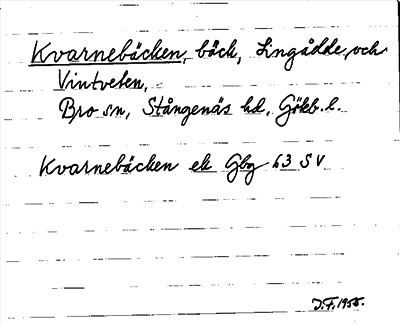 Kvarnebäcken, bäck, Lingådde, och
Vintveten,
Bro sn, Stångenäs hd, Götb. l.
Kvarnebäcken ek Gbg 63 SV
J.F. 1955.